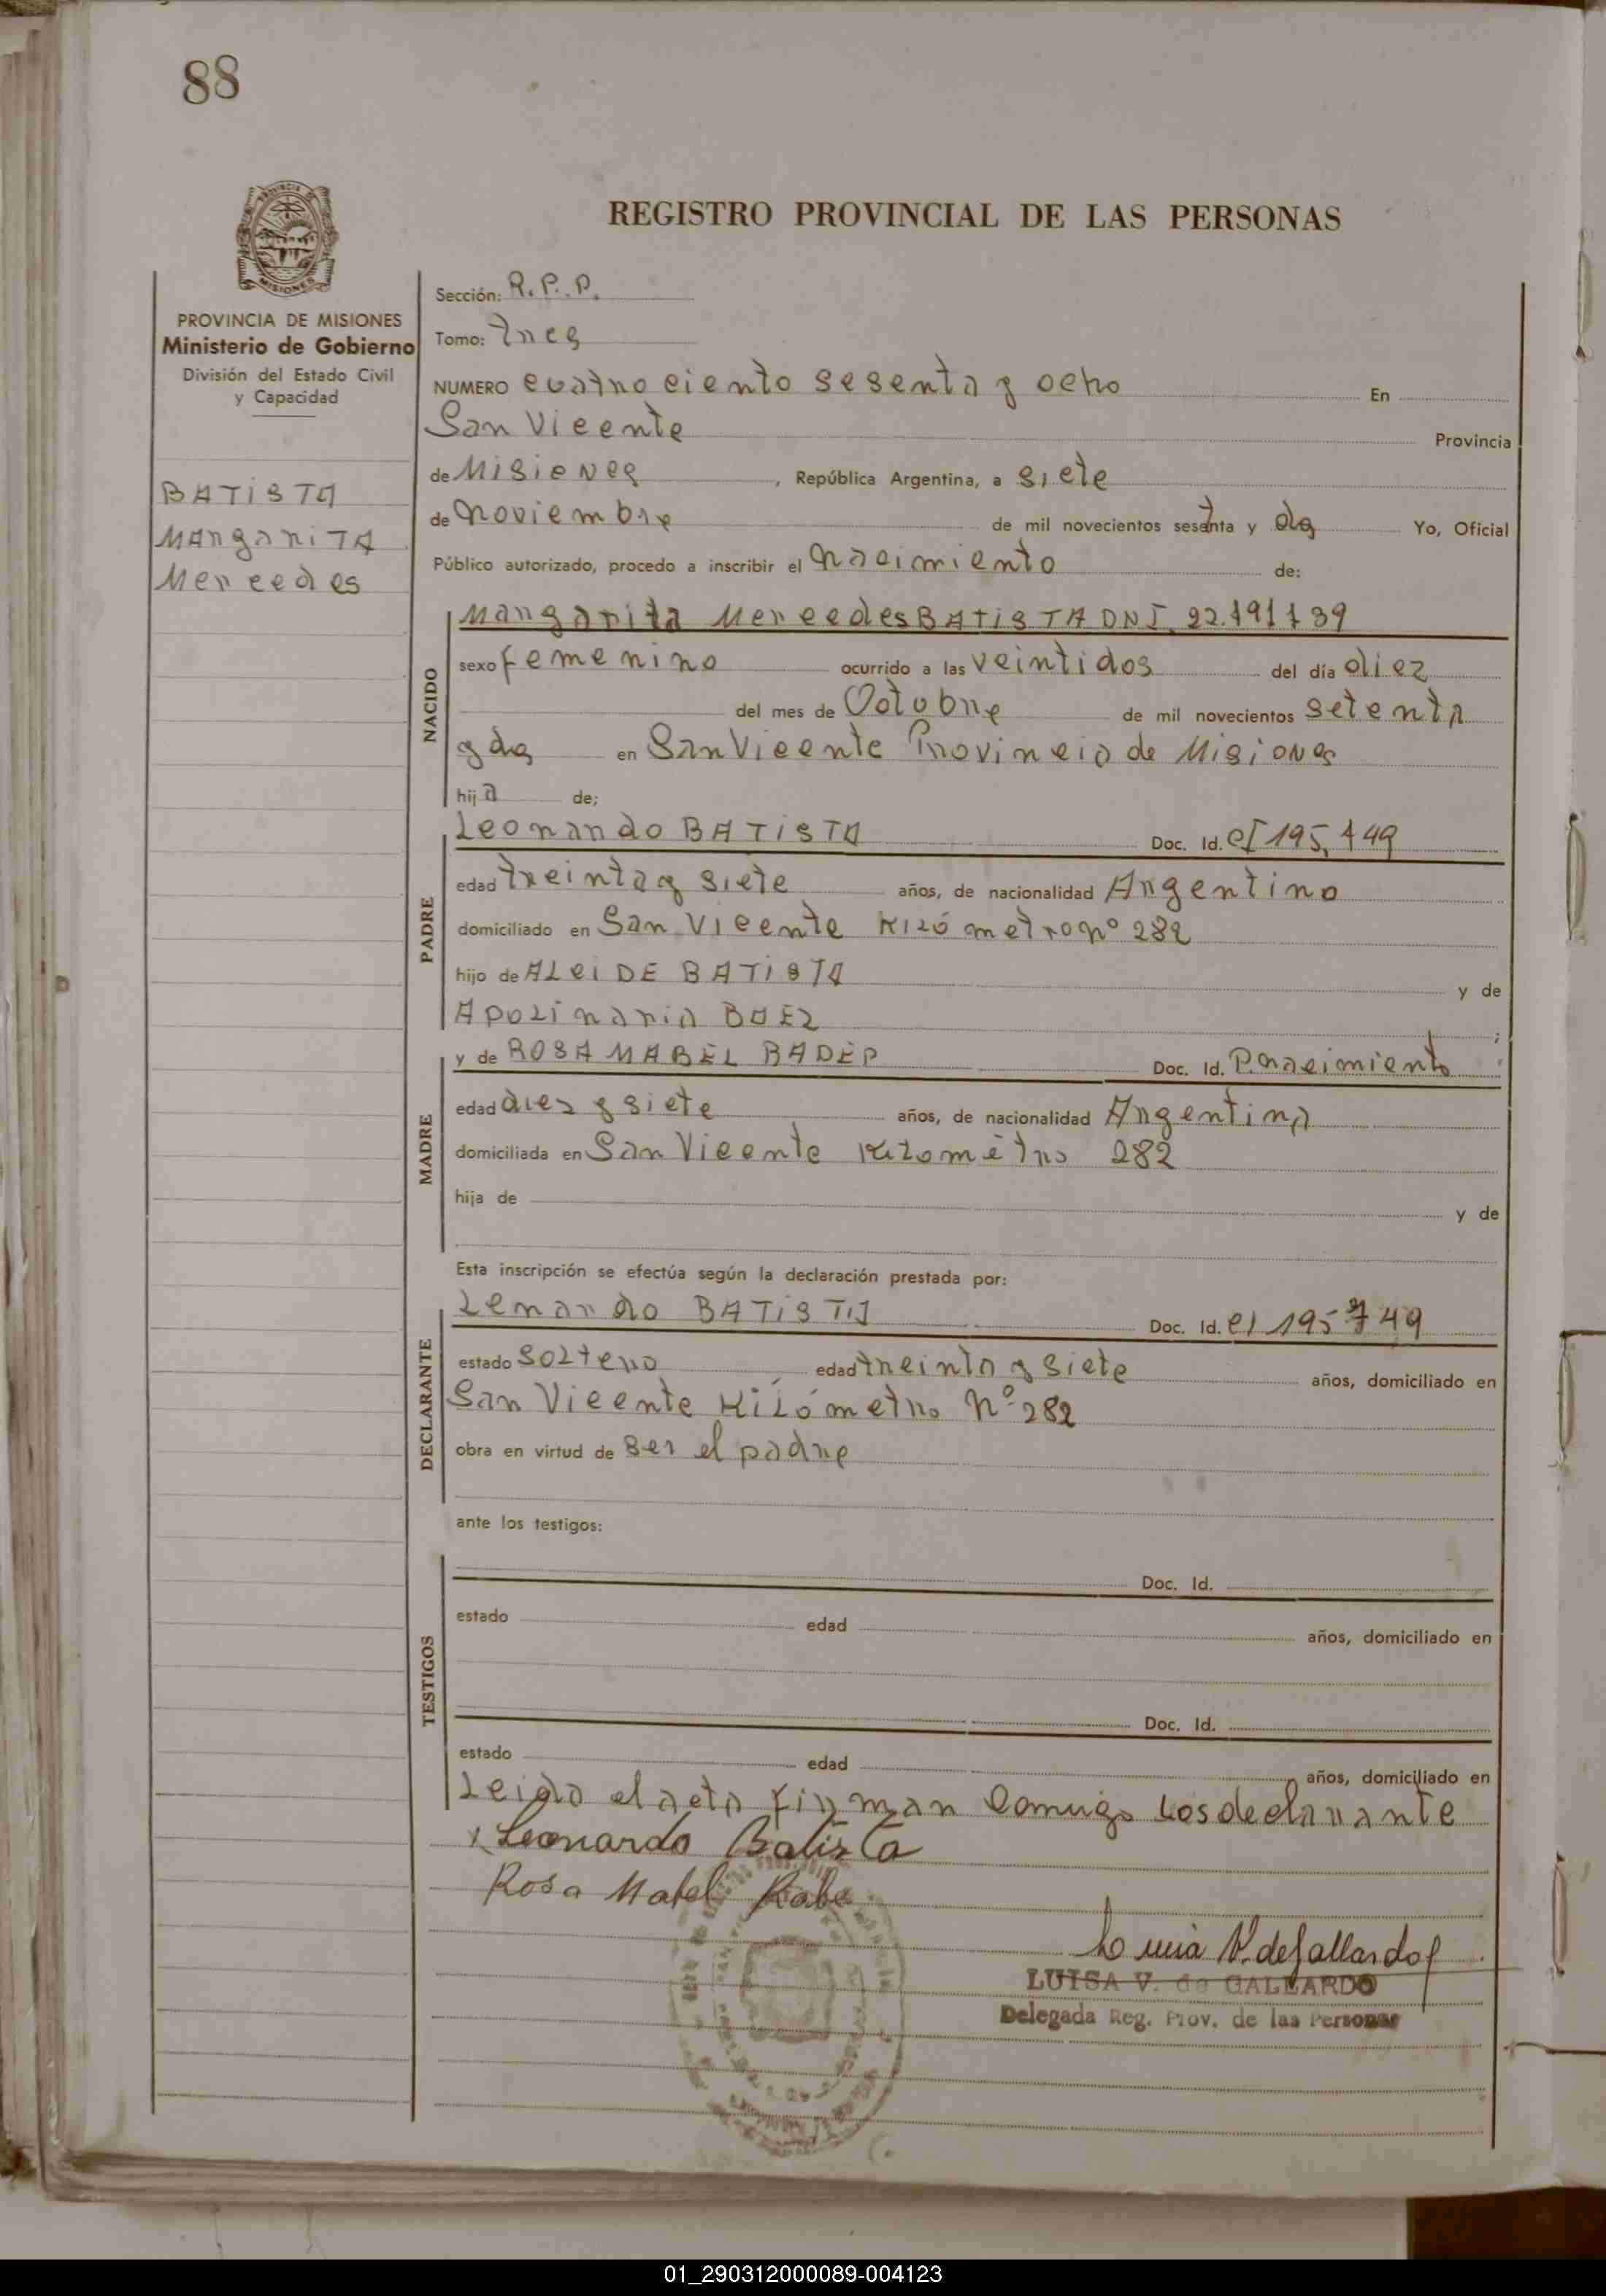 88
REGISTRO PROVINCIAL DE LAS PERSONAS
PROVINCIA DE MISIONES
Ministerio de Gobierno
División del Estado Civil
y Capacidad
BATISTA
Margarita
Mercedes
Sección: R.P.P.
Tomo: Tres
NUMERO cuatro ciento sesenta y ocho En
San Vicente Provincia
de Misiones, República Argentina, a siete
de noviembre de mil novecientos setenta y dos Yo, Oficial
Público autorizado, procedo a inscribir el nacimiento de:
NACIDO
Margarita Mercedes BATISTA DNI. 22.
sexo femenino ocurrido a las veintidos del día diez
del mes de Octubre de mil novecientos setenta
y dos en San Vicente Provincia de Misiones
hija de;
PADRE
Leonardo BATISTA Doc. Id. CI 195.749
edad treinta y siete años, de nacionalidad Argentino
domiciliado en San Vicente Kilómetro nº 282
hijo de ALCIDE BATISTA y de
Apolinaria BAEZ;
MADRE
y de ROSA MABEL Doc. Id. P. nacimiento
edad diez y siete años, de nacionalidad Argentina
domiciliada en San Vicente Kilométro 282
hija de y de
Esta inscripción se efectúa según la declaración prestada por:
DECLARANTE
Lenardo BATISTA Doc. Id. CI 195749
estado soltero edad treinta y siete años, domiciliado en
San Vicente Kilómetro Nº 282
obra en virtud de ser el padre
ante los testigos:
TESTIGOS
Doc. Id.
estado edad años, domiciliado en
Doc. Id.
estado edad años, domiciliado en
Leida el acta firman comigo los declarante
Leonardo Batista
Rosa Mabel
Luisa V. de Gallardo
LUISA V. de GALLARDO
Delegada Reg. Prov. de las Personas
01_290312000089-004123